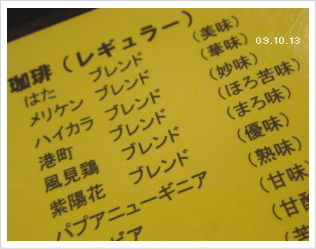 09.10.13
珈琲（レギュラー）
はた ブレンド （美味）
メリケン ブレンド （華味）
ハイカラ ブレンド （妙味）
港町 ブレンド （ほろ苦味）
風見鶏 ブレンド （まろ味）
紫陽花 ブレンド （優味）
パプアニューギニア （熟味）
ビア （甘味）
（甘
（苦